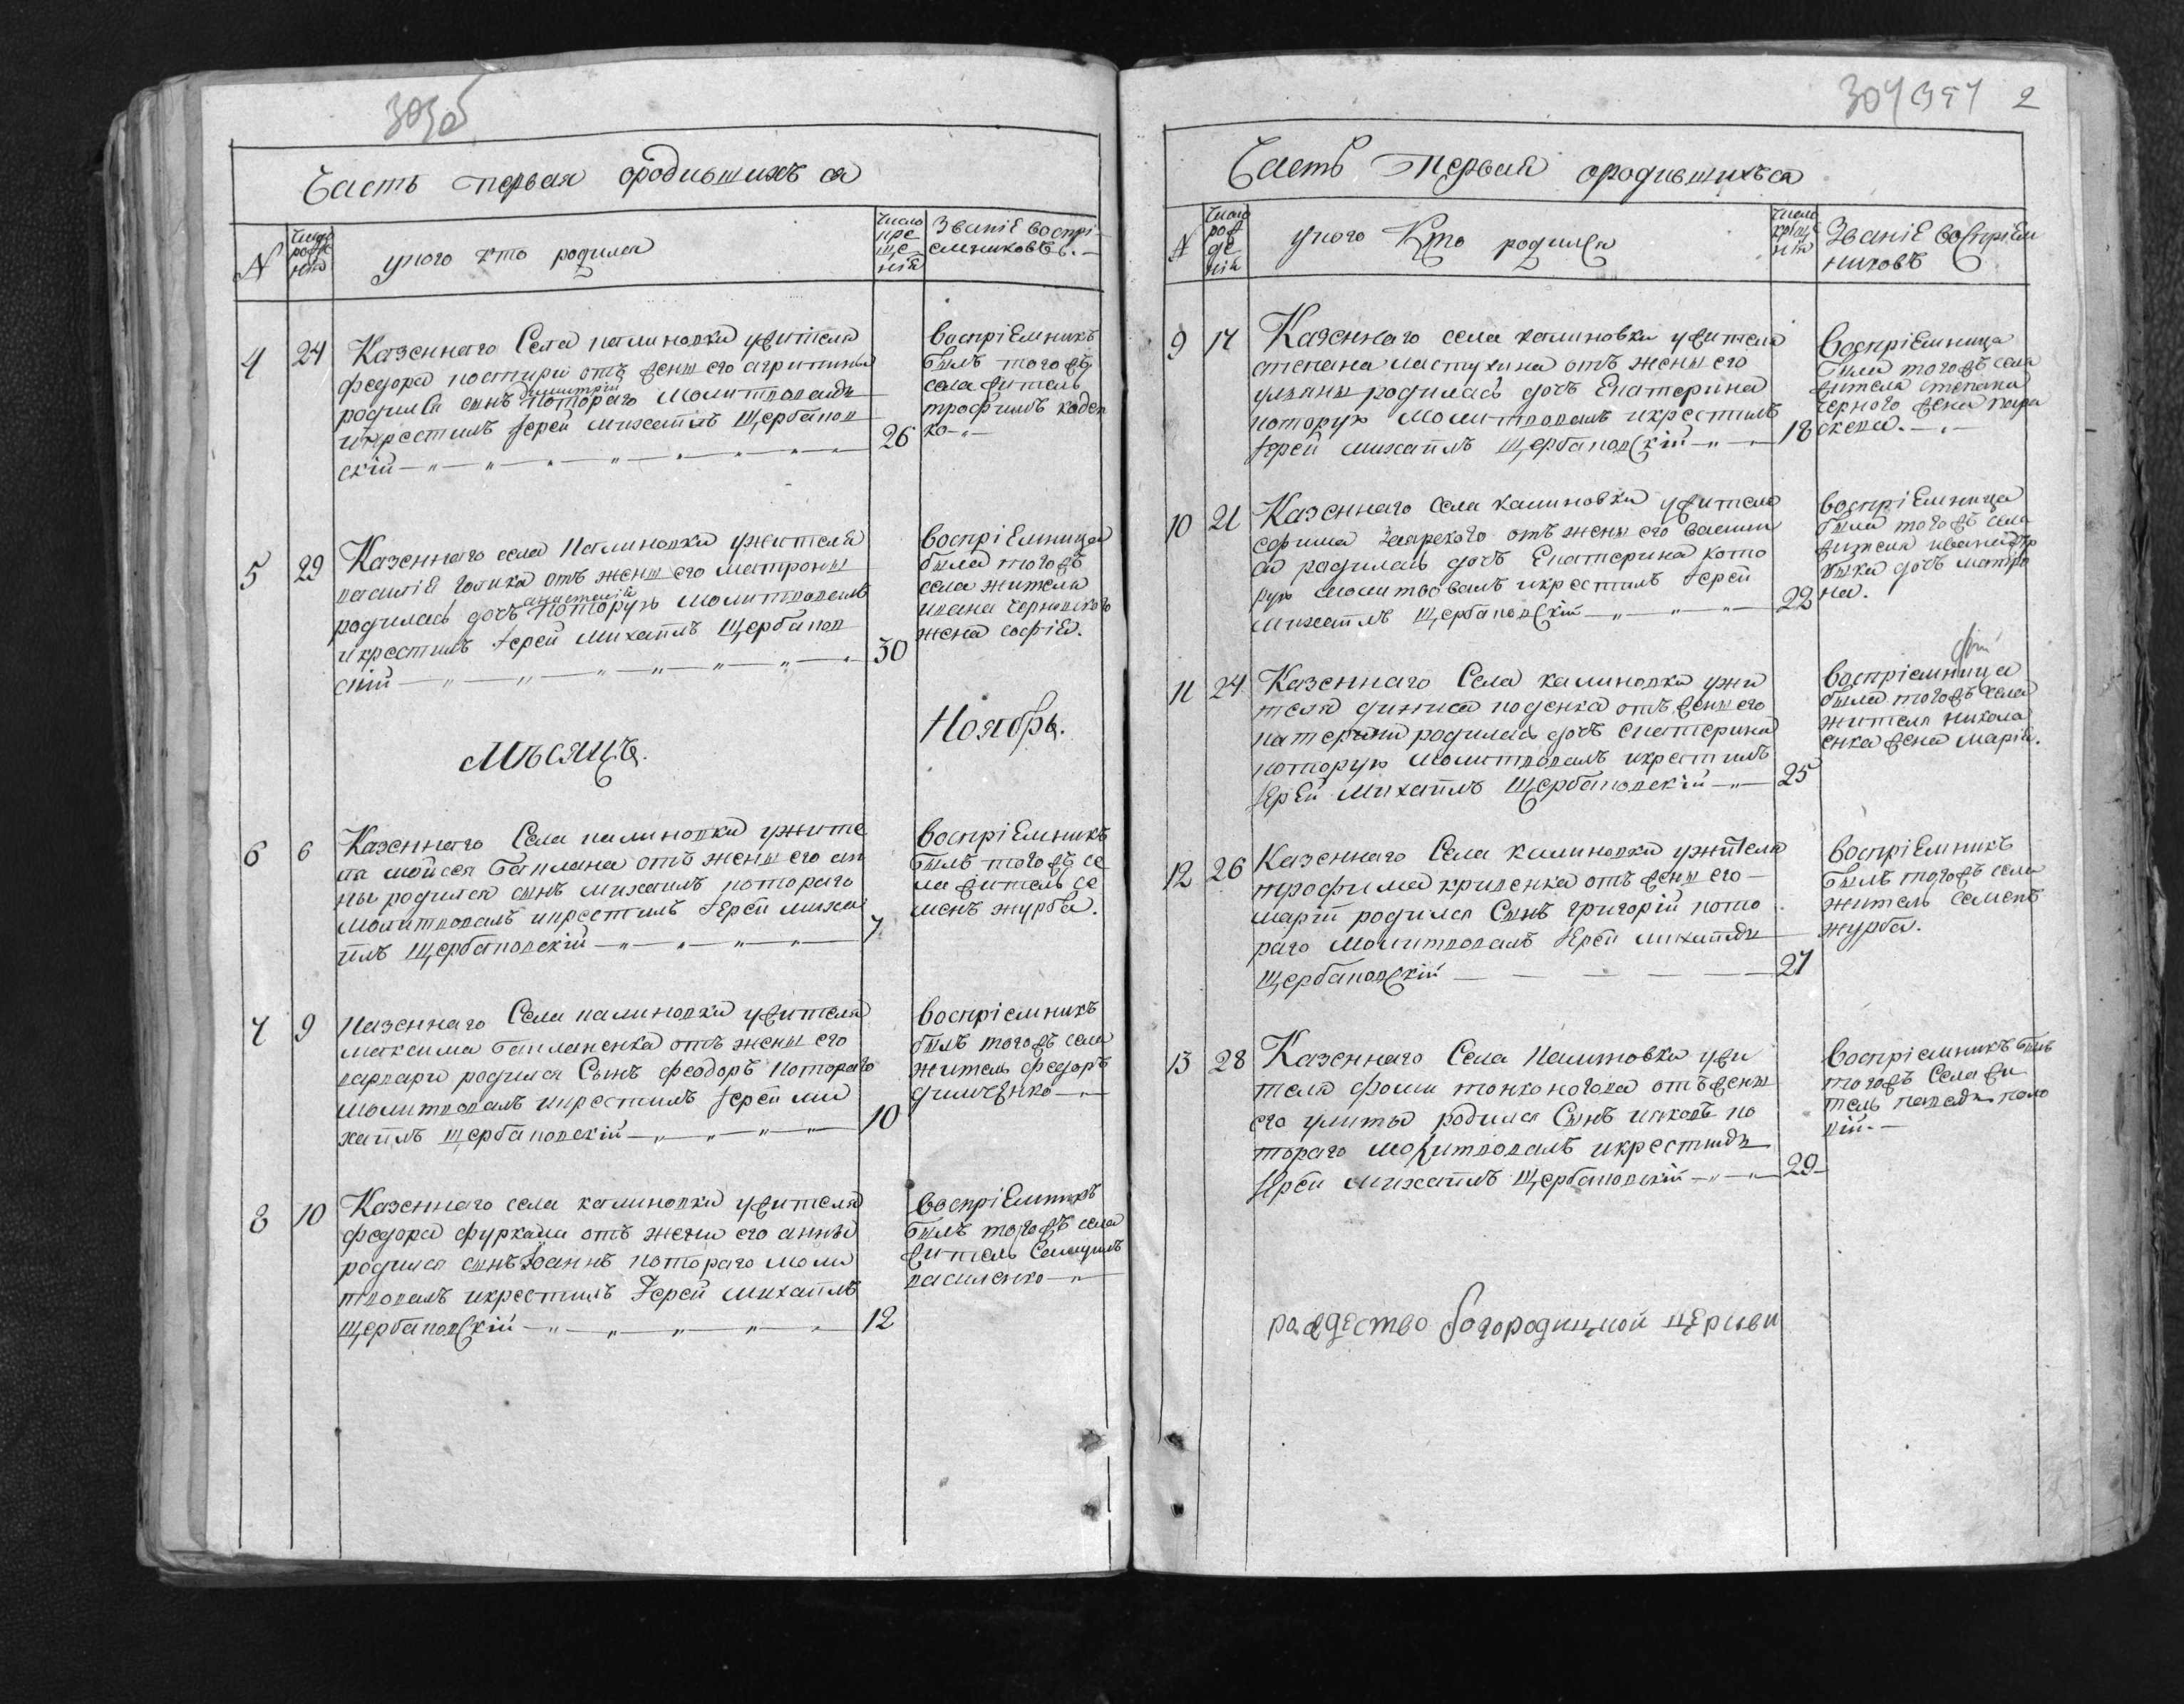 303об
Часть первая ородившихъ ся
N
Число рожденія
укого кто родился
Число крещенія
Званіе воспріемниковъ
4
24
Казеннаго Села калиновки ужителя
федора костири отъ жены его агрипины
родился сынъ Димитрій котораго молитвовалъ
икрестилъ Іерей михаилъ Щербанов
скій
26
Воспріемникъ
былъ тогожъ
села житель
трофимъ коден
ко
5
29
Казеннаго села Калиновки ужителя
василія голика отъ жены его матроны
родилась дочь анастасія которую молитвовалъ
икрестилъ Іерей михаилъ Щербанов
скій
30
воспріемница
была тогожъ
села жителя
ивана чернявского
жена софія.
Мѣсяцъ.
Ноябрь.
6
6
Казеннаго Села калиновки ужите
ля мойсея Каплана отъ жены его ан
ны родился сынъ михаилъ котораго
молитвовалъ икрестилъ Іерей миха
илъ Щербановскій
7
Воспріемникъ
былъ тогожъ се
ла житель се
менъ журба.
7
9
Казеннаго Села калиновки ужителя
максима Капланенка отъ жены его
варвары родился Сынъ феодоръ котораго
молитвовалъ икрестилъ Іерей ми
хаилъ щербановскій
10
Воспріемникъ
былъ тогожъ села
житель федоръ
димченко
8
10
Казеннаго села калиновки ужителя
федора фуркала отъ жены его анны
родился сынъ Іоаннъ котораго моли
твовалъ икрестилъ Іерей михаилъ
щербановскій
12
Воспріемникъ
былъ тогожъ села
житель Самуилъ
василенко
304 2
Часть первая ородившихъся
N
Число рожденія
укого Кто родился
Число крещенія
Званіе воспріемниковъ
9
17
Казеннаго села калиновки ужителя
степана ластухина отъ жены его
ульяны родилась дочь Екатерина
которую молитвовалъ икрестилъ
Іерей михаилъ Щербановскій
18
Воспріемница
была тогожъ села
жителя степана
черного жена пара
скева.
10
21
Казеннаго села калиновки ужителя
ефима отъ жены его васили
сы родилась дочь Екатерина кото
рую молитвовалъ икрестилъ Іерей
михаилъ Щербановскій
22
воспріемница
была тогожъ села
жителя ивана
дочь матро
на.
11
24
Казеннаго Села калиновки ужи
теля диниса коденка отъ жены его
катерины родилась дочь екатерина
которую молитвовалъ икрестилъ
Іерей михаилъ Щербановскій
25
воспріемница
была тогожъ села
жителя никола
енка жена марія.
12
26
Казеннаго Села калиновки ужителя
трофима кривенка отъ жены его
маріи родился Сынъ григорій кото
раго молитвовалъ Іерей михаилъ
щербановскій
27
Воспріемникъ
былъ тогожъ села
житель семенъ
журба.
13
28
Казеннаго Села Калиновки ужи
теля фомы тонконогова отъ жены
его улиты родился Сынъ иаковъ ко
тораго молитвовалъ икрестилъ
Іерей михаилъ Щербановскій
29
Воспріемникъ былъ
тогожъ Села жи
тель
рождество богородицкой церкви